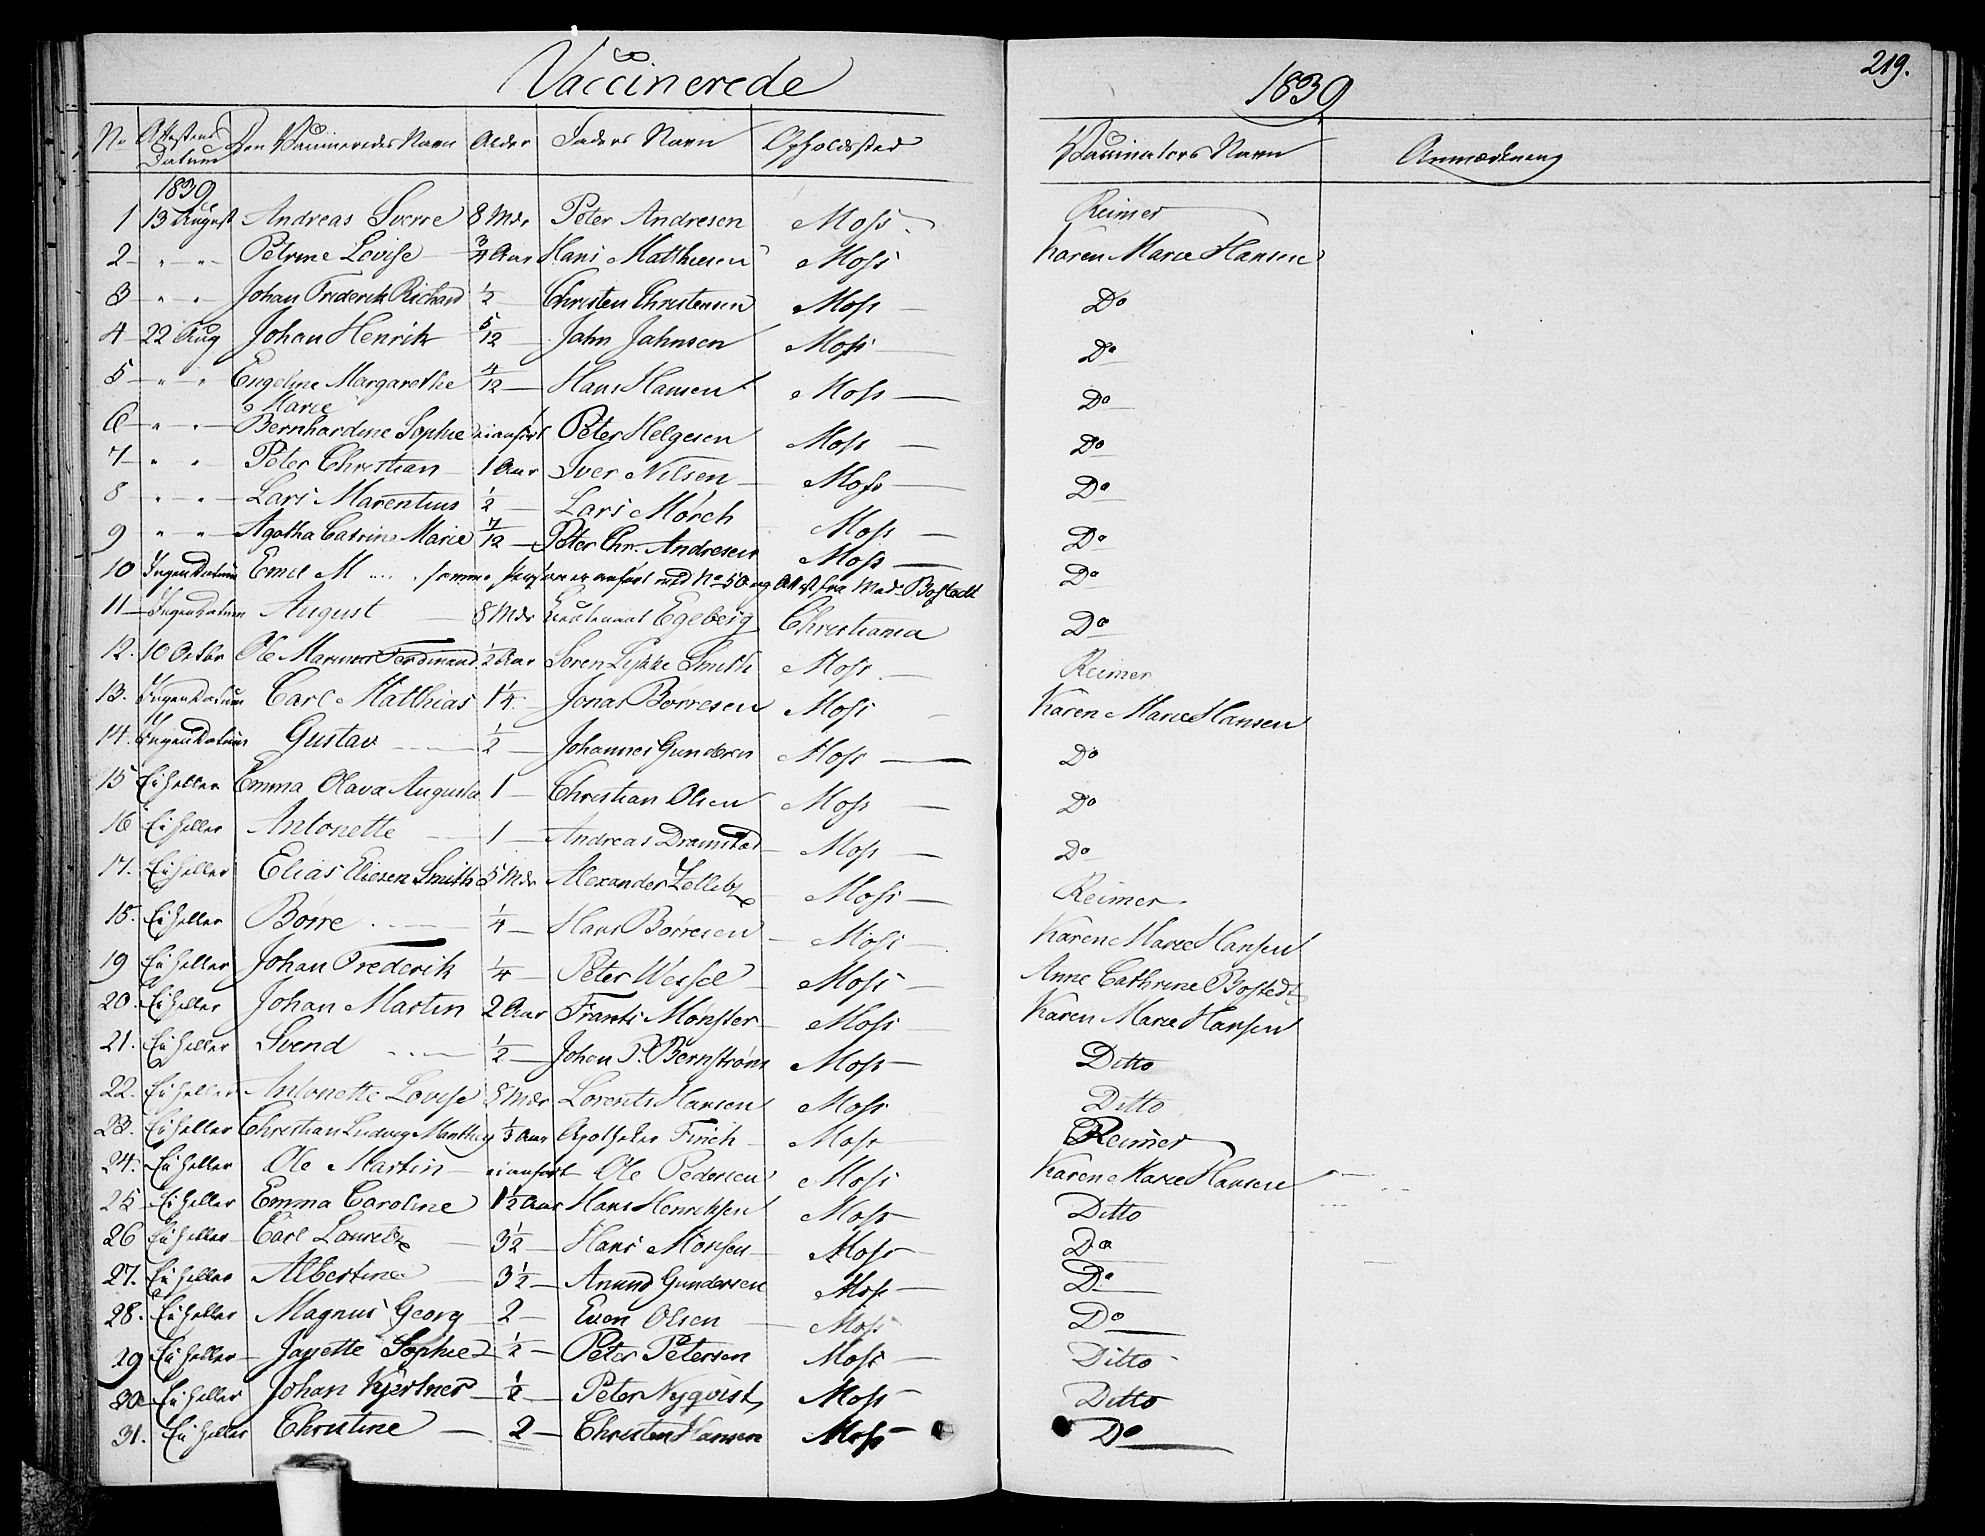 Vaccinerede 1839 219.
No Attestens Datum Den Vaccineredes Navn Alder Faders Navn Opholdssted Vaccinators Navn Anmærkning
1839
1 13 August Andreas Sverre 8 Mdr Peter Andresen Moss Reimer
2 " " Petrine Lovise 3/4 Aar Hans Matthiesen Moss Karen Marie Hansen
3 " " Johan Frederik Richard 1/2 Christen Christensen Moss Do
4 22 Aug Johan Henrik 5/12 Jahn Jahnsen Moss Do
5 " " Engeline Margarethe 4/12 Hans Hansen Moss Do
Marie
6 " " Bernhardine Sophie ei anført Peter Helgesen Moss Do
7 " " Peter Christian 1 Aar Iver Nilsen Moss Do
8 " " Lars Marentius 1/2 Lars Mörch Moss Do
9 " " Agatha Catrine Marie 7/12 Peter Chr. Andresen Moss Do
10 Ingen Datum Emil M .... samme Person er anført med No 5 Attest fra Mad. Bostedt Do
11 Ingen Datum August 8 Mdr Lieutenant Egeberg Christiania Do
12. 10 Octbr Ole Marinus Ferdinand 1/2 Aar Sören Lykke Smith Moss Reimer
13. Ingen Datum Carl Matthias 1 1/4 Jonas Börresen Moss Karen Marie Hansen
14. Ingen Datum Gustav 1/2 Johannes Gundersn Moss Do
15 Ei heller Emma Olava Augusta 1 Christian Olsen Moss Do
16 Ei heller Antonette 1 Andreas Dramstad Moss Do
17. Ei heller Elias Eliesen Smith 5 Mdr Alexander Moss Reimer
15. Ei heller Börre 1/4 Hans Börresen Moss Karen Marie Hansen
19 Ei heller Johan Frederik 1/4 Peter Weisel Moss Anne Cathrine Bostedt
20. Ei heller Johan Martin 2 Aar Frants Mönster Moss Karen Marie Hansen
21. Ei heller Svend 1/2 Johan P. Bernström Moss Ditto
22. Ei heller Antonette Lovise 5 Mdr Lorents Hansen Moss Ditto
23. Ei heller Christian Ludvig Manthey 1/3 Aar Apotheker Finch Moss Reimer
24. Ei heller Ole Martin ei anført Ole Pedersen Moss Karen Marie Hansen
25 Ei heller Emma Caroline 1 1/2 Aar Hans Henriksen Moss Ditto
26 Ei heller Carl Lauretz 3 1/2 Hans Monsen Moss Do
27. Ei heller Albertine 3 1/2 Anund Gundersen Moss Do
28. Ei heller Magnus Georg 2 Even Olsen Moss Do
29 Ei heller Janette Sophie 1/2 Peter Petersen Moss Ditto
30 Ei heller Johan Kjerlner 1/2 Peter Nyqvist Moss Ditto
31. Ei heller Christine 2 Christen Hansen Moss Do